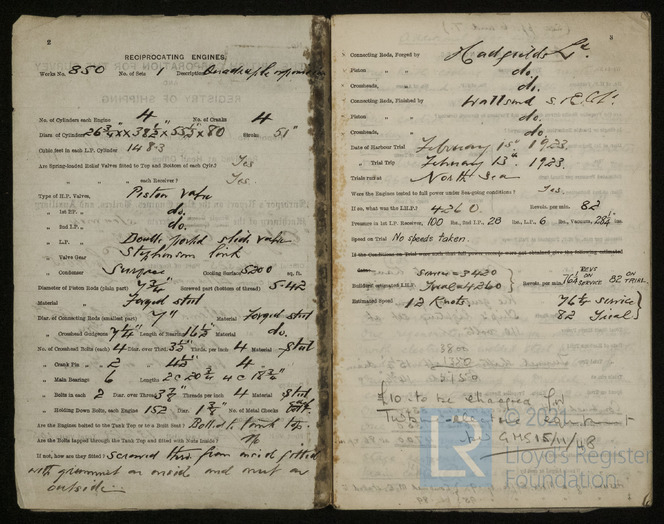 2
RECIPROCATING ENGINES.
Works No. 850 No. of Sets 1 Description Quadruple expansion
No. of Cylinders each Engine 4 No. of Cranks 4
Diars of Cylinders 26¾" x 38½" x 55½" x 80 Stroke 51"
Cubic feet in each L.P. Cylinder 148.3
Are Spring-loaded Relief Valves fitted to Top and Bottom of each Cylr.? Yes
" " each Receiver? Yes
Type of H.P. Valves, Piston valve
" 1st I.P. " do.
" 2nd I.P. " do.
" L.P. " Double ported slide valve
" Valve Gear Stephenson link
" Condenser Surface Cooling Surface 5200 sq. ft.
Diameter of Piston Rods (plain part) 7¾" Screwed part (bottom of thread) 5.42
Material " Forged steel
Diar. of Connecting Rods (smallest part) 7" Material Forged steel
" Crosshead Gudgeons 7¾" Length of Bearing 16½" Material do.
No. of Crosshead Bolts (each) 4 Diar. over Thrd. 3½" Thrds. per inch 4 Material Steel
" Crank Pin " " 2 " 4½" " 4
" Main Bearings 6 Lengths 2 @ 20¾" 4 @ 18¾"
" Bolts in each 2 Diar. over Thread 3¾" Threads per inch 4 Material Steel
" Holding Down Bolts, each Engine 152 Diar. 1⅜" No. of Metal Chocks
Are the Engines bolted to the Tank Top or to a Bolt Seat? Bolted to tank top.
Are the Bolts tapped through the Tank Top and fitted with Nuts Inside? No
If not, how are they fitted? Screwed thro. from inside fitted
with grommet on inside and nut on
outside.
3
Connecting Rods, Forged by Hadfields Ld.
Piston " " do.
Crossheads, " do.
Connecting Rods, Finished by Wallsend S. & E. Co. Ld.
Piston " " do.
Crossheads, " do.
Date of Harbour Trial February 15th 1923
" Trial Trip February 15th 1923.
Trials run at North Sea
Were the Engines tested to full power under Sea-going conditions? Yes.
If so, what was the I.H.P.? 4260 Revols. per min. 82
Pressure in 1st I.P. Receiver, 100 lbs., 2nd I.P. 28 lbs., L.P. 6 lbs., Vacuum, 28½ ins.
Speed on Trial No speeds taken.
If the Conditions on Trial were such that full power records were not obtained give the following estimated
data:—
Builders' estimated I.H.P. Service = 3420 Trial = 4260 Revols. per min. 76½ REVS ON SERVICE 82 ON TRIAL.
Estimated Speed 12 Knots. 76½ Service
82 Trial
£10 to be charged for
© 2021
LR
Lloyd's Register
Foundation